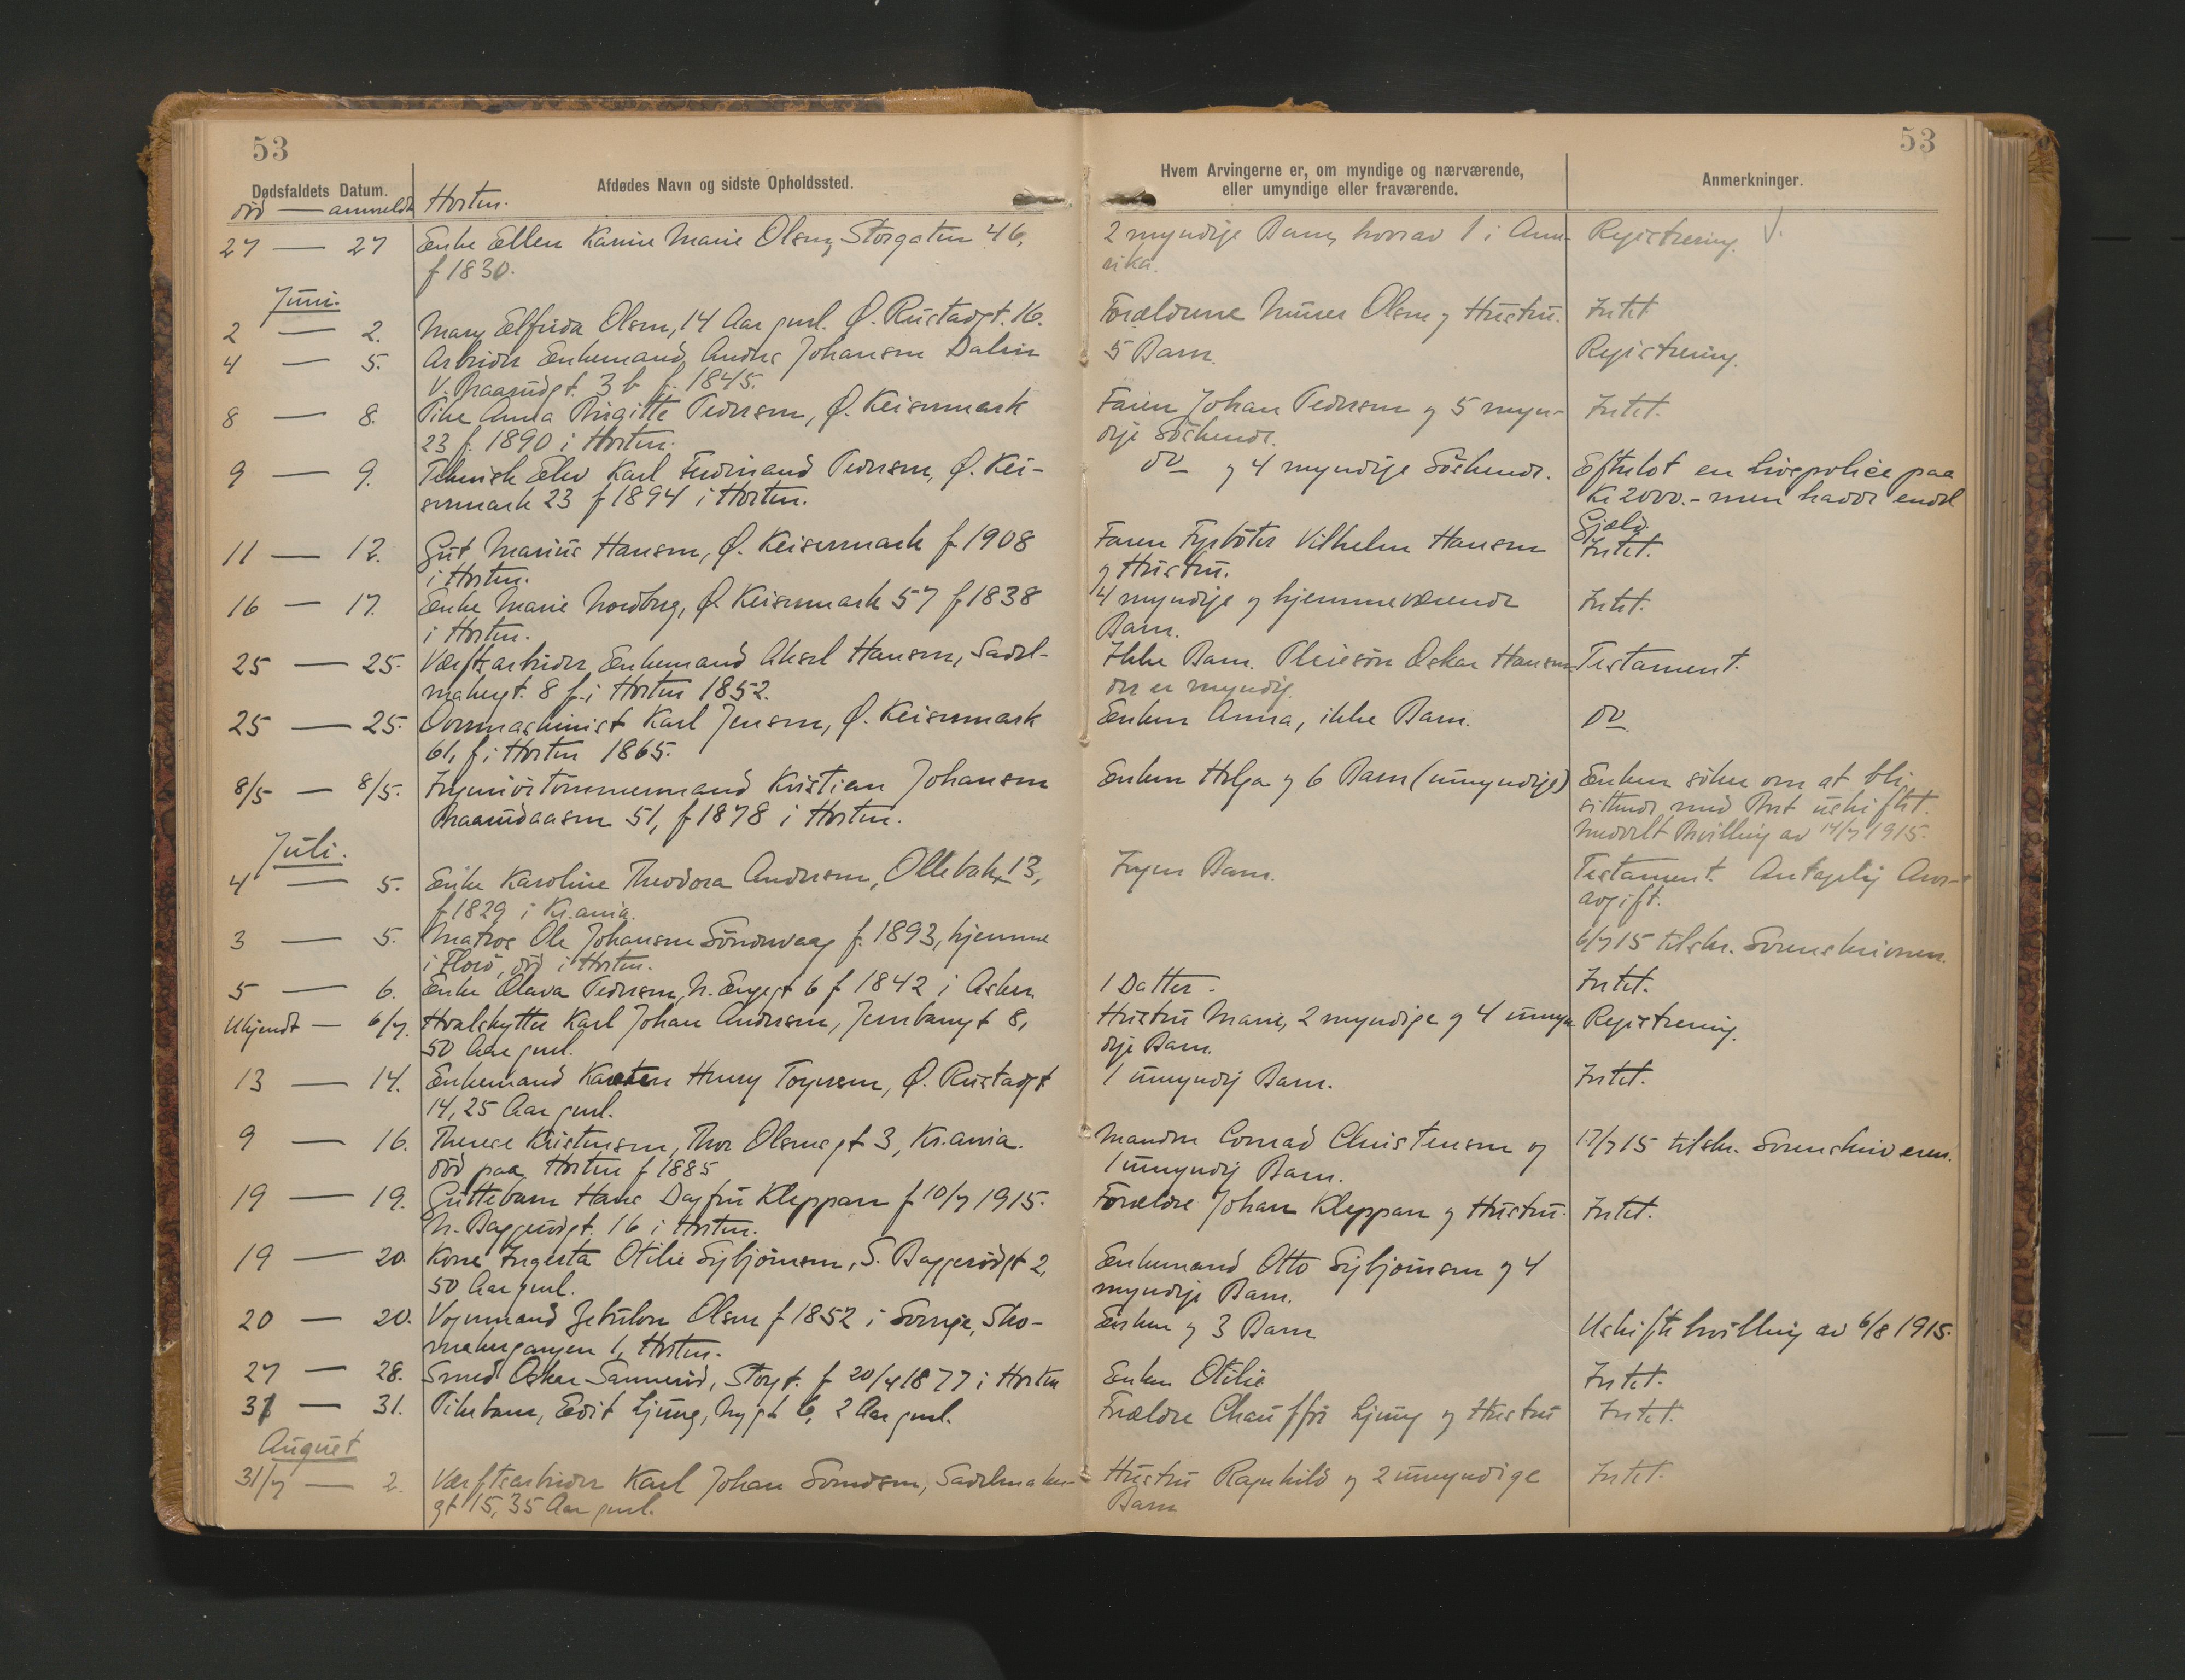 53
53
Dødsfaldets Datum.
Afdødes Navn og sidste Opholdssted.
Hvem Arvingerne er, om myndige og nærværende,
eller umyndige eller fraværende.
Anmerkninger.
død — anmeldt Horten.
27 — 27 Enke Ellen Karine Marie Olsen, Storgaten 46, 2 myndige Barn, hvorav 1 i Ame- Registrering.
f 1830. rika.
Juni.
2 — 2. Mary Elfrida Olsen, 14 Aar gml. Ø. Rustadgt. 16. Forældrene Murer Olsen og Hustru. Intet
4 — 5. Arbeider Enkemand Andres Johansen Dalen 5 Barn. Registrering.
V. Braarudgt. 3 b f. 1845.
8 — 8. Pike Anna Birgitte Pedersen, Ø. Keisermark Faren Johan Pedersen og 5 myn- Intet.
23 f. 1890 i Horten. dige Søskende.
9 — 9. Teknisk Elev Karl Ferdinand Pedersen, Ø. Kei- do og 4 myndige Søskende. Efterlot en Livspolice paa
sermark 23 f 1894 i Horten. Kr 2000.- men havde endel
Gjæld.
11 — 12. Gut Marius Hansen, Ø. Keisermark f 1908 Faren Fyrbøter Vilhelm Hansen Intet.
i Horten. og Hustru.
16 — 17. Enke Marie Nordberg, Ø. Keisermark 57 f 1838 4 myndige og hjemmeværende Intet.
i Horten. Barn.
25 — 25. Værftsarbeider, Enkemand Aksel Hansen, Sadel- Ikke Barn. Pleiesøn Oskar Hansen Testament.
magergt. 8 f. i Horten 1852. der er myndig.
25 — 25. Ovrmaskinist Karl Jensen, Ø. Keisermark Enken Anna, ikke Barn. do
61, f i Horten 1865.
8/5 — 8/5. Ingeniørtømmermand Kristian Johansen Enken Helga og 6 Barn (umyndige) Enken søker om at bli
Braarudaasen 51, f 1878 i Horten. sittende med Boet uskiftet.
Meddelt Bevilling av 14/7 1915.
Juli.
4 — 5. Enke Karoline Theodora Andersen, Ollebakk 13, Ingen Barn. Testament. Antagelig Arve-
f 1829 i Kr.ania. avgift.
3 — 5. Matros Ole Johansen Sønderwaag f. 1893, hjemme 6/7 15 tilskr. Sorenskriveren.
i Florø, død i Horten.
5 — 6. Enke Olava Pedersen, N. Engegt 6 f 1842 i Asker. 1 Datter. Intet.
Ukjendt — 6/7. Hvalskytter Karl Johan Andersen, Jernbanegt 8, Hustru Marie, 2 myndige og 4 umyn- Registrering.
50 Aar gml. dige Barn.
13 — 14. Enkemand Karsten Henry Torgersen, Ø. Rustadgt 1 umyndig Barn. Intet.
14, 25 Aar gml.
9 — 16. Therese Kristensen, Thor Olsensgt 3, Kr.ania. Manden Conrad Christensen og 17/7 15 tilskr. Sorenskriveren.
død paa Horten f 1885 1 umyndig Barn.
19 — 19. Guttebarn Hans Dagfin Kleppan f 10/7 1915. Forældre Johan Kleppan og Hustru. Intet.
N. Baggerudgt. 16 i Horten.
19 — 20. Kone Ingerta Otilie Sigbjørnsen, S. Baggerødgt 2, Enkemand Otto Sigbjørnsen og 4
50 Aar gml. myndige Barn.
20 — 20. Vognmand Zebulon Olsen f 1852 i Sverige, Sko- Enken og 3 Barn Uskiftebevilling av 6/8 1915.
makergangen 1, Horten.
27 — 28. Smed Oskar Sannerød, Storgt. f 20/4 1877 i Horten Enken Otilie Intet.
31 — 31. Pikebarn, Edit Ljung, Nygt 6, 2 Aar gml. Forældre Chauffør Ljung og Hustru Intet.
August
31/7 — 2. Værftsarbeider Karl Johan Svendsen, Sadelmaker- Hustru Ragnhild og 2 umyndige Intet.
gt 15, 35 Aar gml. Barn